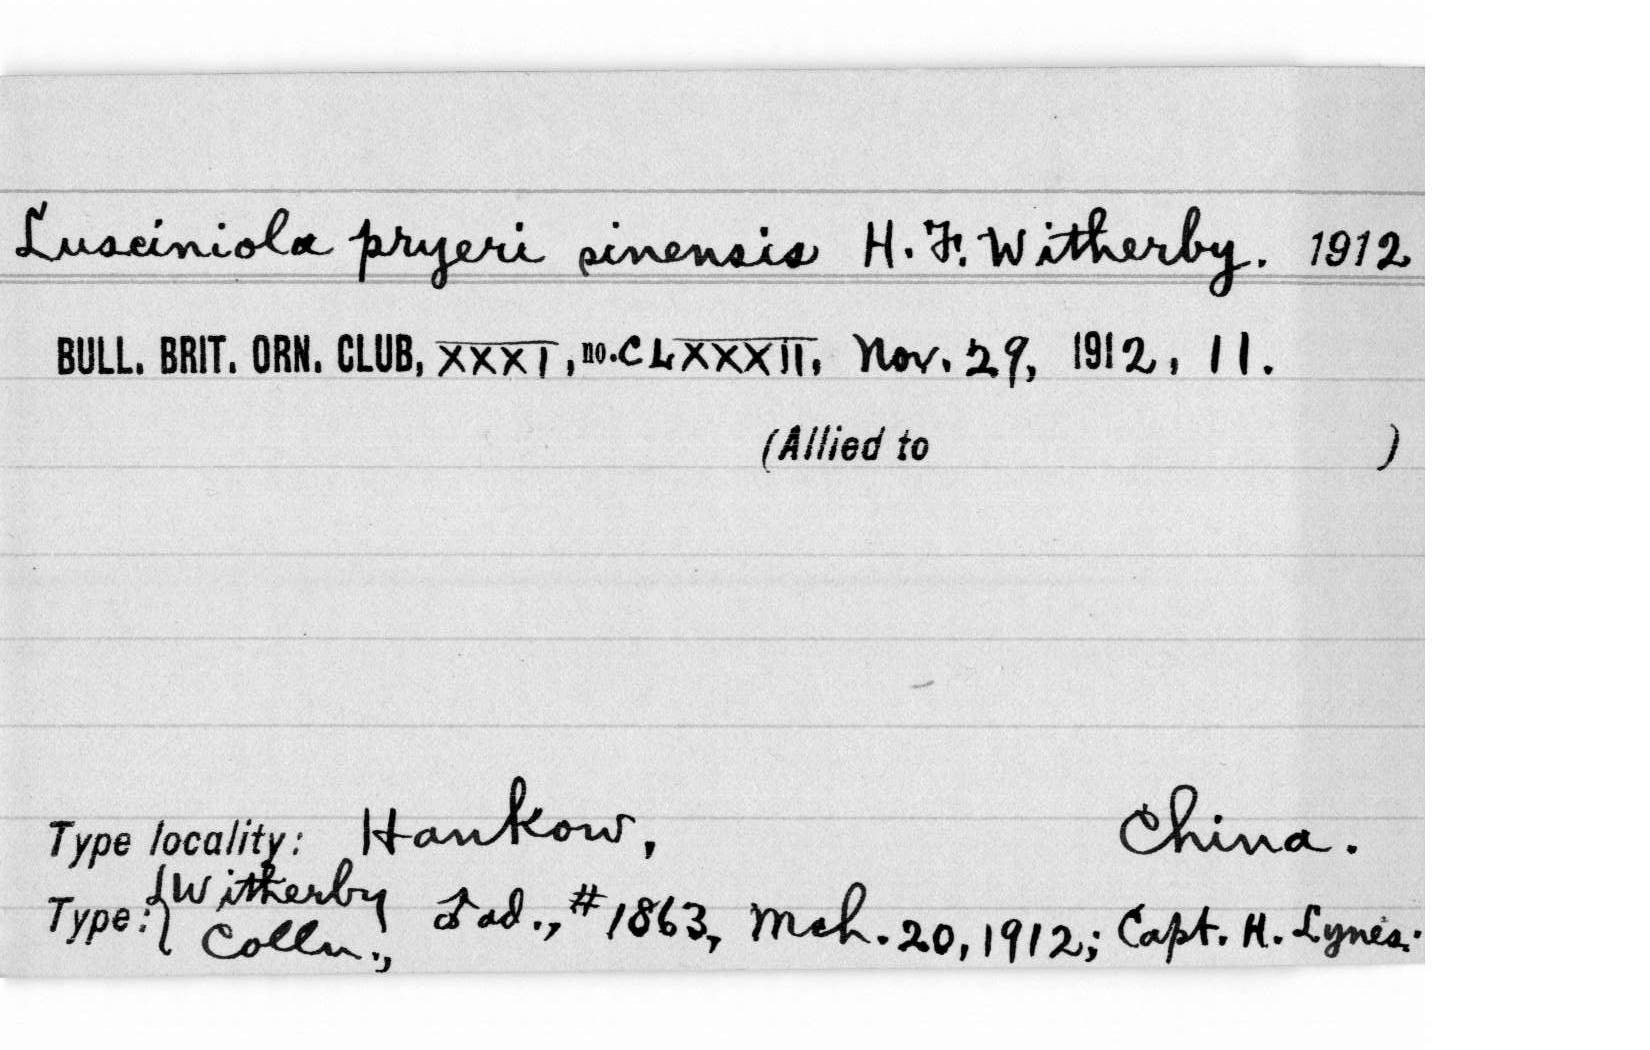 Lusciniola pryeri sinensis H. F. Witherby. 1912
BULL. BRIT. ORN. CLUB, XXXI, no. CLXXXII, Nov. 29, 1912, 11.
(Allied to )
Type locality: Hankow, China.
Type: {Witherby Colln., ♂ ad., #1863, Mch. 20, 1912; Capt. H. Lynes.